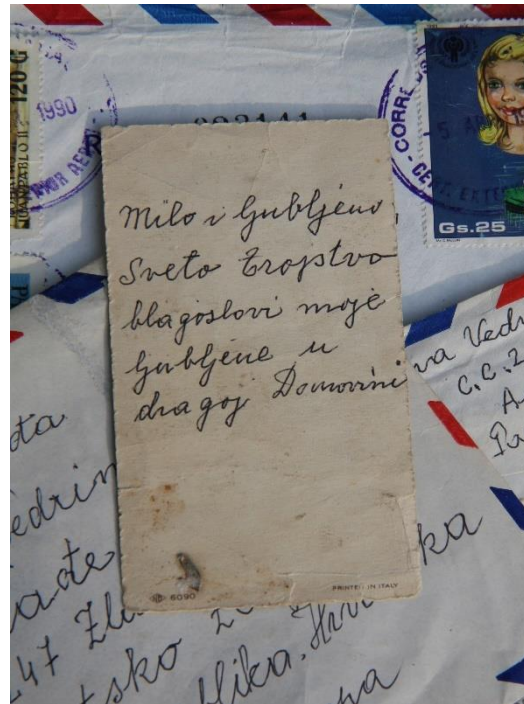 120 G
JUAN PABLO II
1990
CORRE
Gs.25
Milo i ljubljeno,
Sveto Trojstvo
blagoslovi moje
ljubljene u
dragoj Domovini
6090
PRINTED IN ITALY
va Vedr
C.C.2
A
Pa
ota
edrin
ađe
247 Zl
tsko
ka
blika Hrv
pa